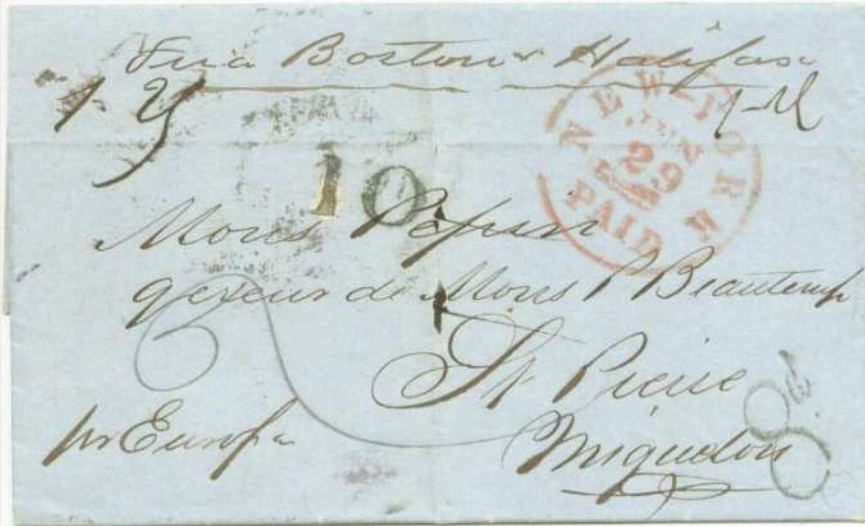 Via Boston & Halifax
NEW-YORK
JUN
29
PAID
10
Mons Pepin
gereur de Mons P Beautemp
St Pierre
Miquelon
pr Europa
8d